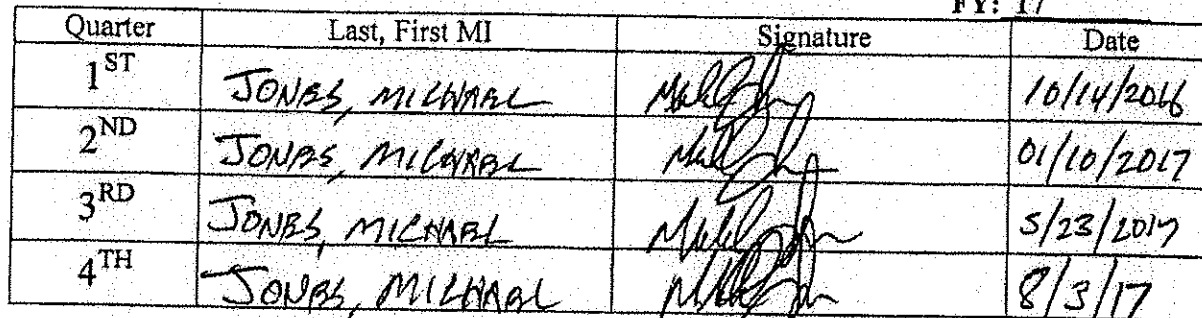 FY: 17
Quarter Last, First MI Signature Date
1ST JONES, MICHAEL 10/14/2016
2ND JONES, MICHAEL 01/10/2017
3RD JONES, MICHAEL 5/23/2017
4TH JONES, MICHAEL 8/3/17